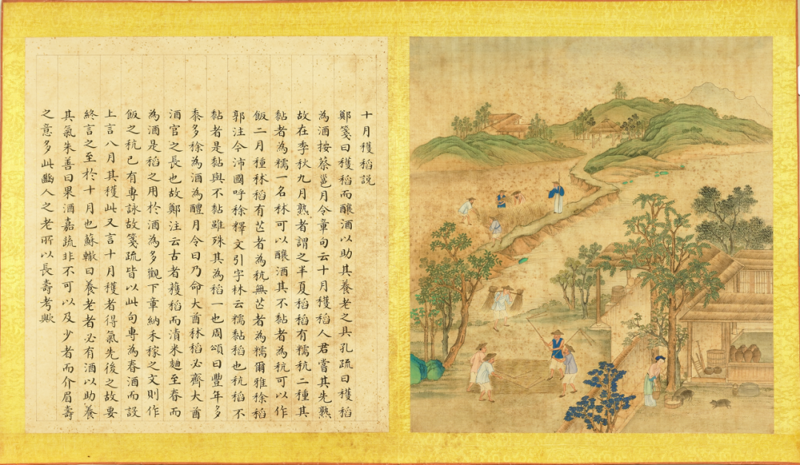 十月穫稻說
鄭箋曰穫稻而釀酒以助其養老之具孔疏曰穫稻
為酒按蔡邕月令章句云十月穫稻人君嘗其先熟
故在季秋九月熟者謂之半夏稻稻有穤秔二種其
黏者為穤一名秫可以釀酒其不黏者為秔可以作
飯二月種秫稻有芒者為秔無芒者為穤爾雅稌稻
郭注今沛國呼稌釋文引字林云穤黏稻也秔稻不
黏者是黏與不黏雖殊其為稻一也周頌曰豐年多
黍多稌為酒為醴月令曰乃命大酋秫稻必齊大酋
酒官之長也故鄭注云古者穫稻而漬米麴至春而
為酒是稻之用於酒為多觀下章納禾稼之文則作
飯之秔已有專詠故箋疏皆以此句專為春酒而設
上言八月其穫此又言十月穫者得氣先後之故要
終言之至於十月也蘇轍曰養老者必有酒以助養
其氣朱善曰果酒嘉蔬非不可以及少者而介眉壽
之意多此豳人之老所以長壽考歟